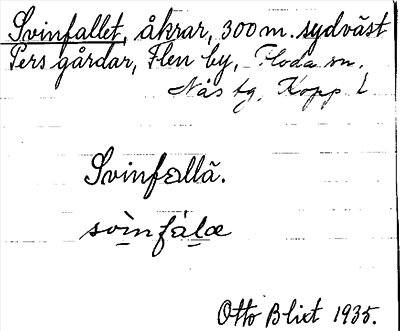 Svinfallet, åkrar, 300 m. sydväst
Pers gårdar, Flen by, Floda sn.
Nås tg. Kopp. L
Svinfallä.
svìnfàlæ
Otto Blixt 1935.